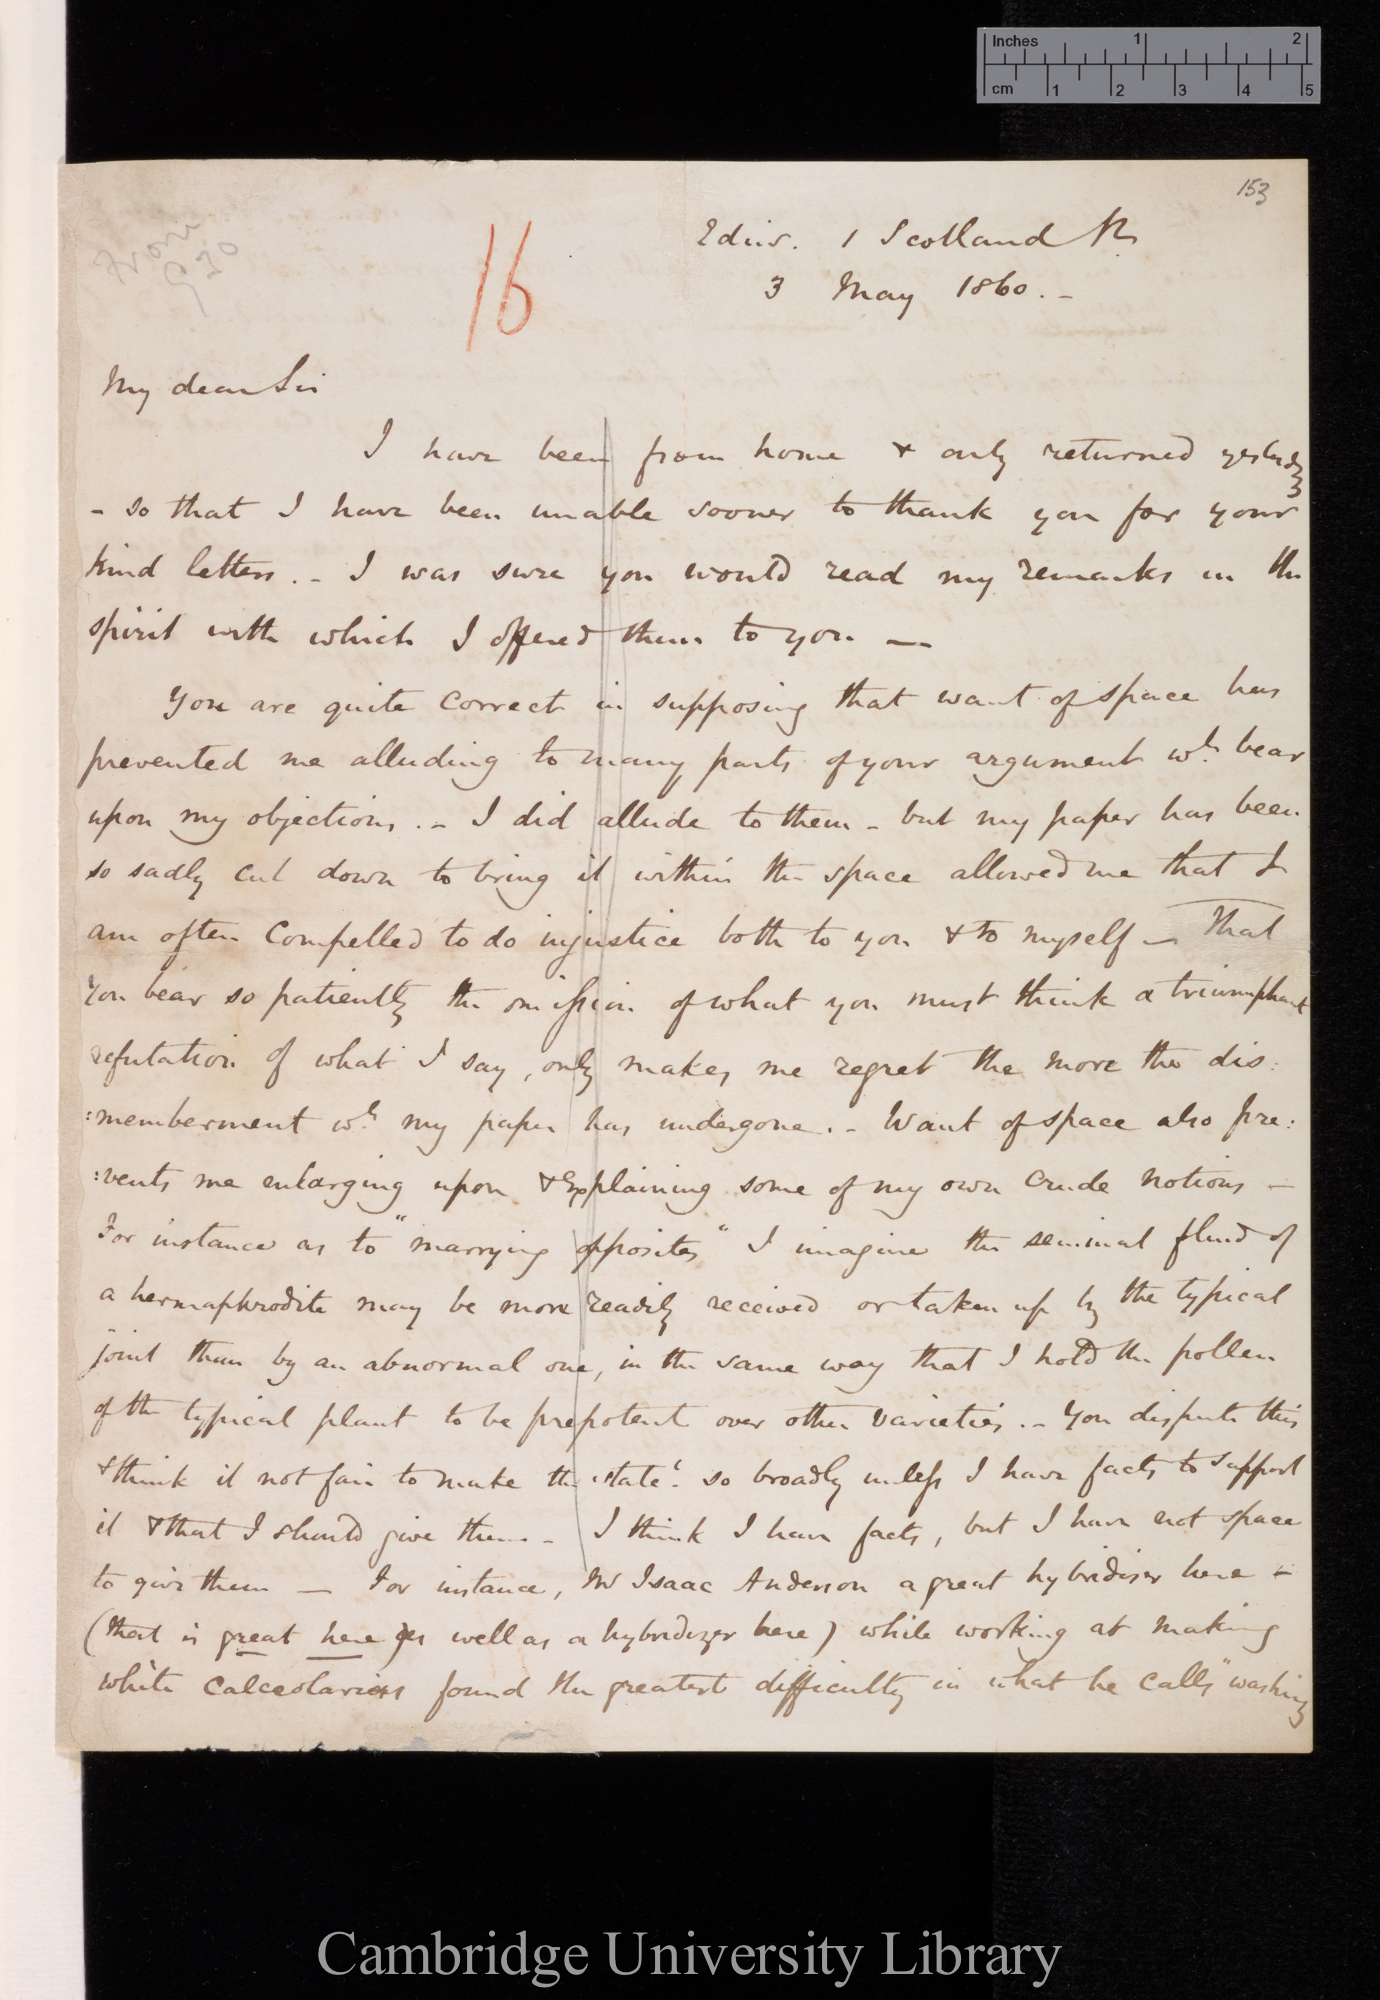 Inches 1 2
cm 1 2 3 4 5
153
16
Edinr. 1 Scotland St
3 May 1860. –
My dear Sir
I have been from home & only returned yesterday
– so that I have been unable sooner to thank you for your
kind letters. – I was sure you would read my remarks in the
spirit with which I offered them to you —
You are quite correct in supposing that want of space has
prevented me alluding to many parts of your argument wh. bear
upon my objections. – I did allude to them – but my paper has been
so sadly cut down to bring it within the space allowed me that I
am often compelled to do injustice both to you & to myself – That
you bear so patiently the omission of what you must think a triumphant
refutation of what I say, only makes me regret the more the dis:
:memberment wh. my paper has undergone. – Want of space also pre:
:vents me enlarging upon & explaining some of my own crude notions –
For instance as to "marrying opposites" I imagine the seminal fluid of
a hermaphrodite may be more readily received or taken up by the typical
joint than by an abnormal one, in the same way that I hold the pollen
of the typical plant to be prepotent over other varieties. – You dispute this
& think it not fair to make the statet. so broadly unless I have facts to support
it & that I should give them – I think I have facts, but I have not space
to give them — For instance, Mr Isaac Anderson a great hybridiser here –
(that is great here as well as a hybridizer here) while working at making
white calceolarias found the greatest difficulty in what he calls "washing
Cambridge University Library